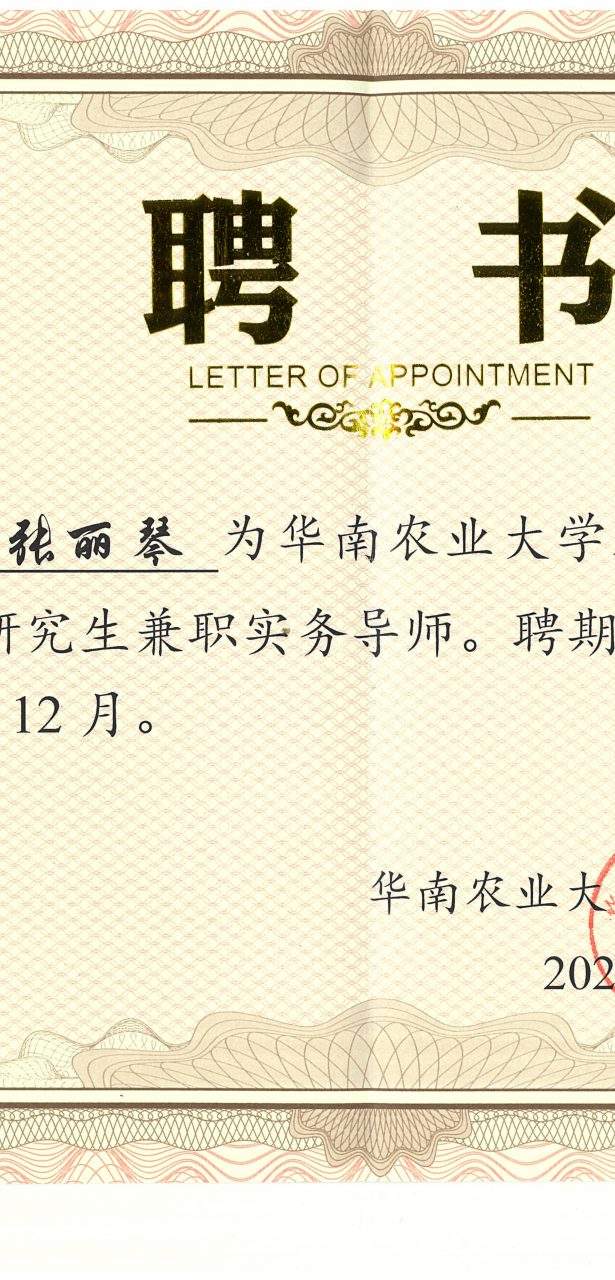 聘 书
LETTER OF APPOINTMENT
张丽琴 为华南农业大学
研究生兼职实务导师。聘期
12 月。
华南农业大
202